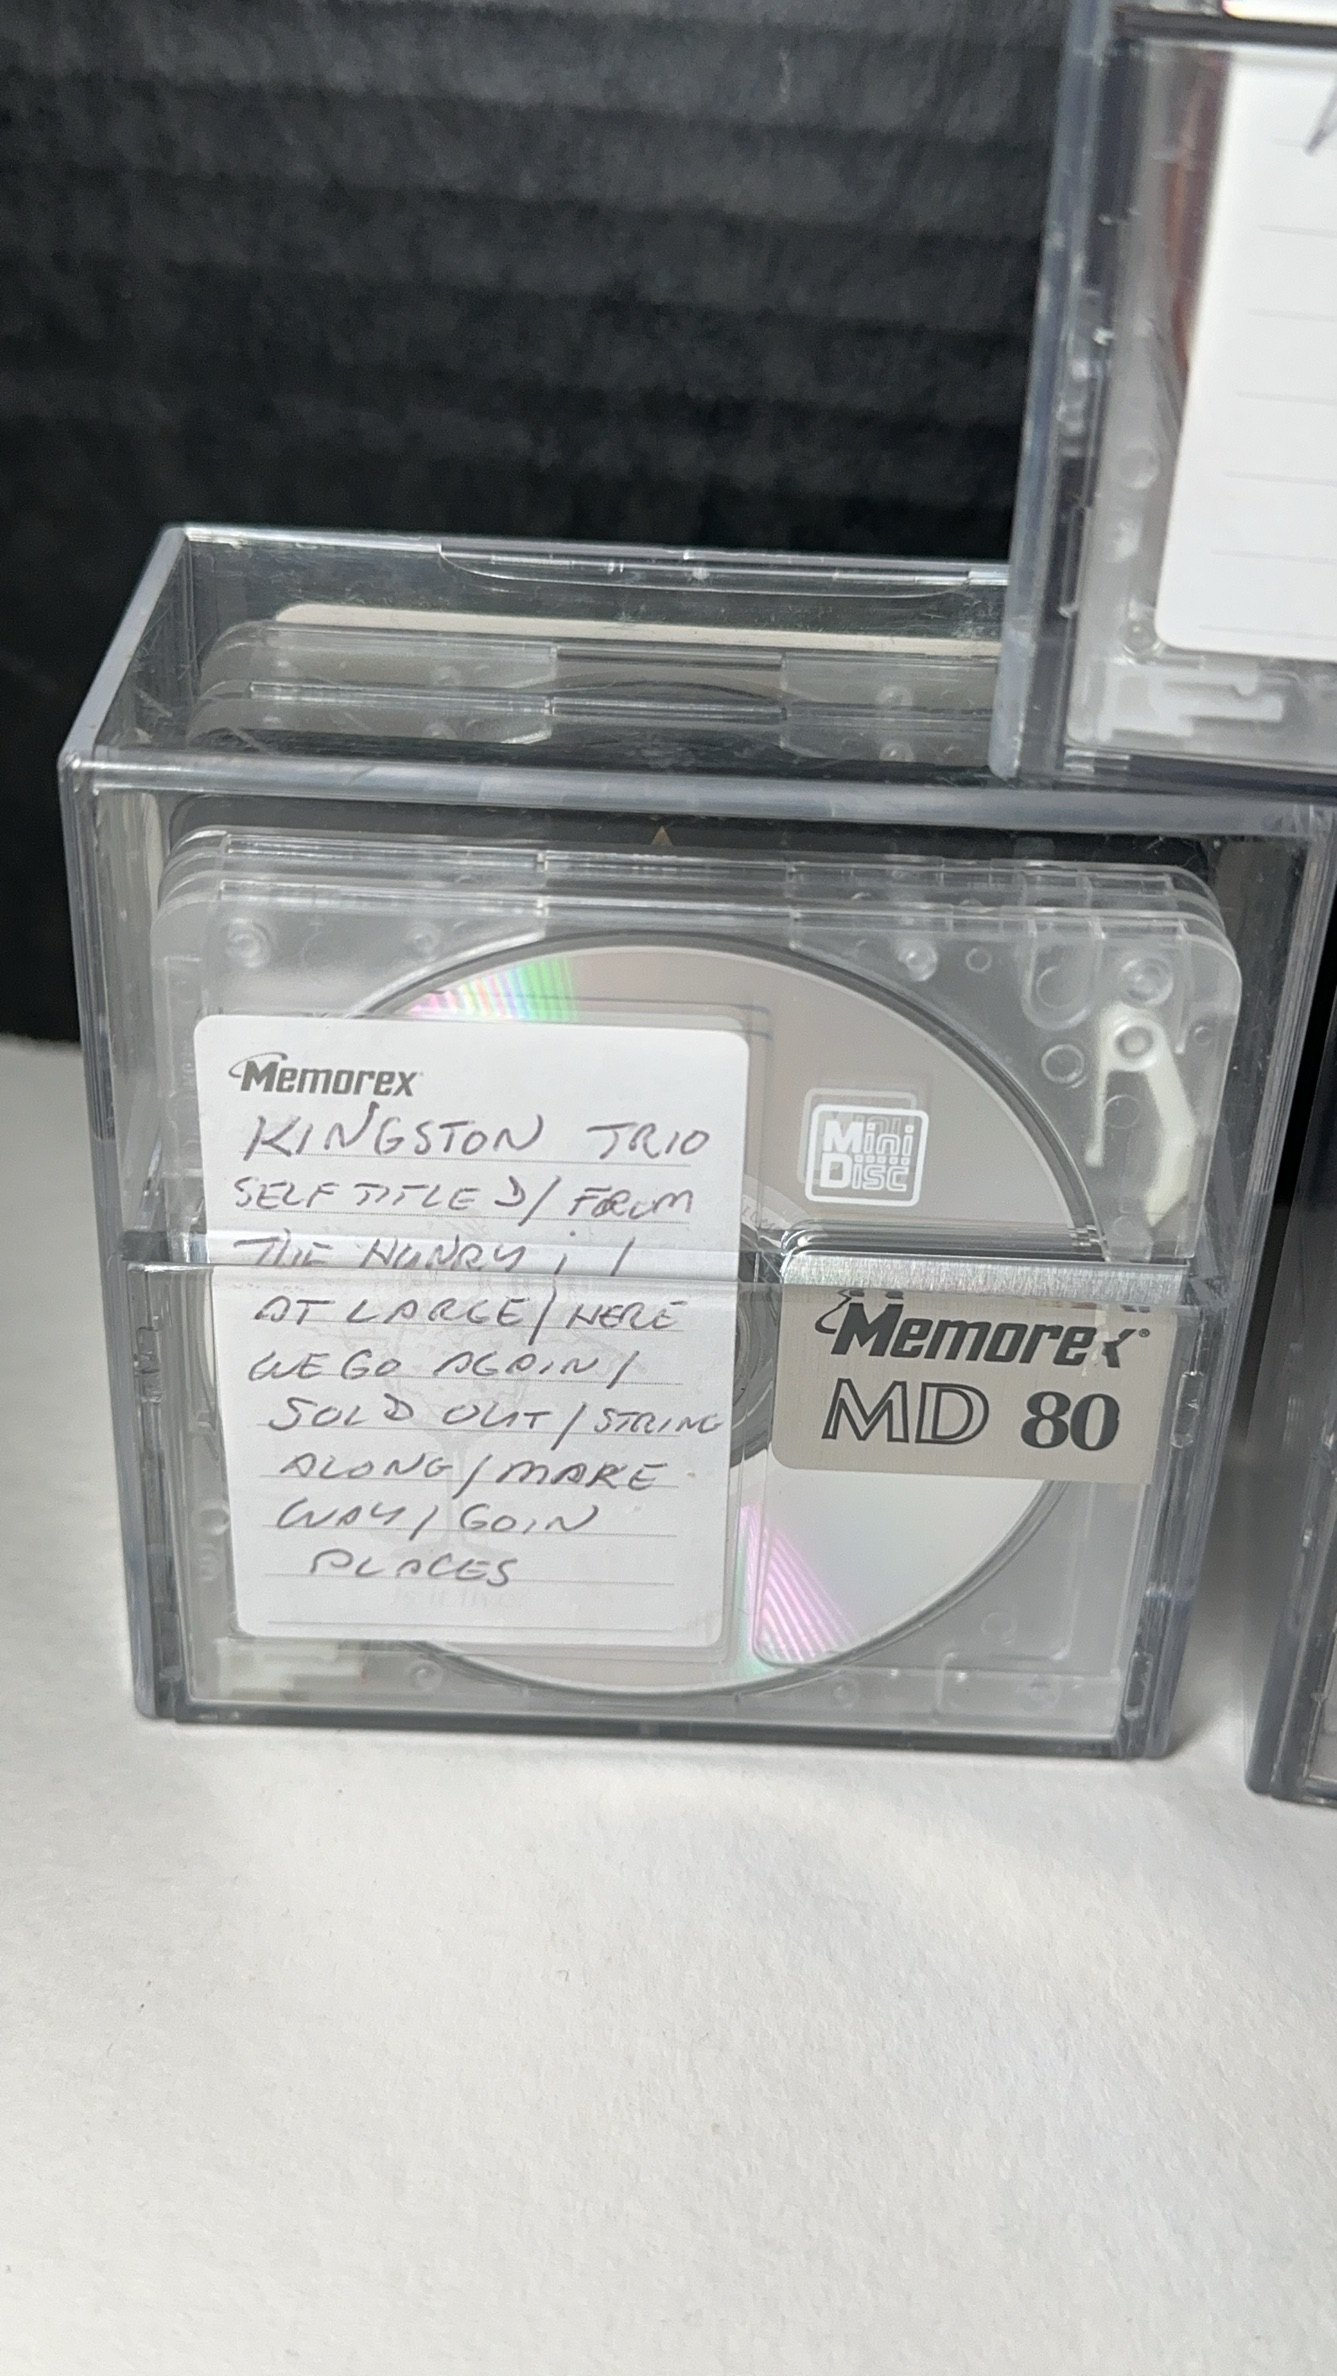 Memorex
KINGSTON TRIO
SELF TITLED/FROM
THE HUNRY i /
AT LARGE/HERE
WE GO AGAIN/
SOLD OUT/STRING
ALONG/MAKE
WAY/GOIN
PLACES
Mini
Disc
Memorex
MD 80